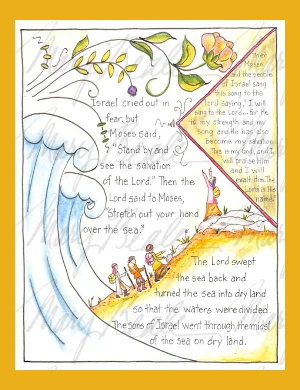 Israel cried out in
fear, but
Moses said,
"Stand by and
see the salvation
of the Lord." Then the
Lord said to Moses,
"Stretch out your hand
over the sea."
Then
Moses
and the people
of Israel sang
this song to the
Lord saying, "I will
sing to the Lord... for He
is my strength and my
song and He has also
become my salvation
This is my God, and I
will praise Him
and I will
exalt Him. The
Lord is His
name."
The Lord swept
the sea back and
turned the sea into dry land
so that the waters were divided.
The sons of Israel went through the midst
of the sea on dry land.